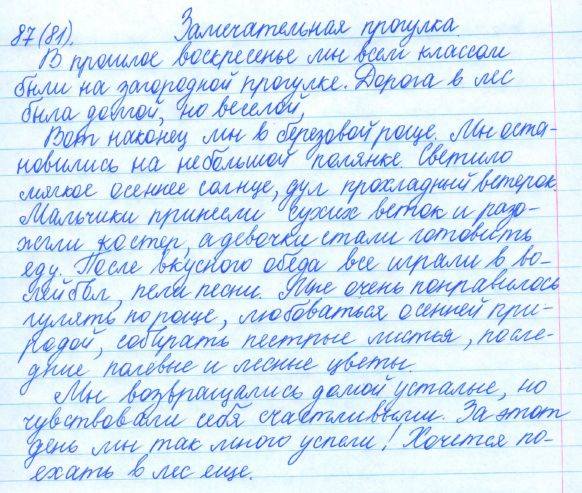 87(81). Замечательная прогулка
В прошлое воскресенье мы всем классом
были на загородной прогулке. Дорога в лес
была долгой, но веселой,
Вот наконец мы в березовой роще. Мы оста-
новились на небольшой полянке. Светило
мягкое осеннее солнце, дул прохладный ветерок.
Мальчики принесли сухих веток и разо-
жгли костер, а девочки стали готовить
еду. После вкусного обеда все играли в во-
лейбол, пели песни. Мне очень понравилось
гулять по роще, любоваться осенней при-
родой, собирать пестрые листья, после-
дние полевые и лесные цветы.
Мы возвращались домой усталые, но
чувствовали себя счастливыми. За этот
день мы так много успели! Хочется по-
ехать в лес еще.